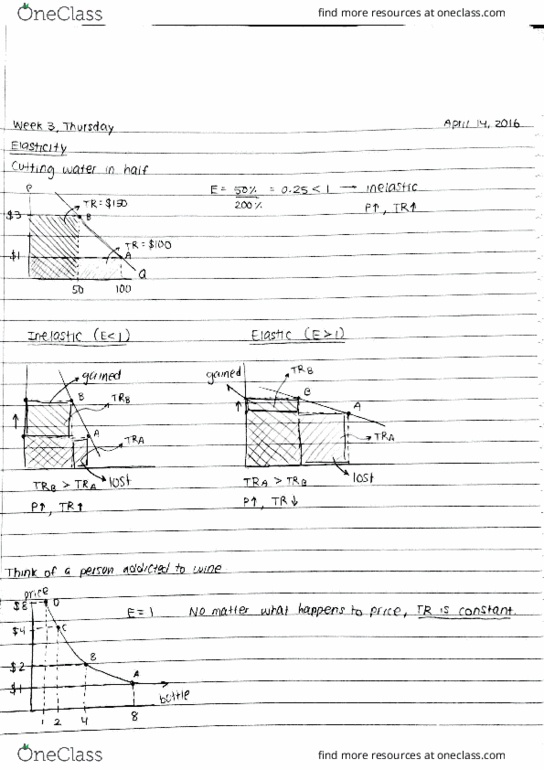 OneClass find more resources at oneclass.com
Week 3, Thursday April 14, 2016
Elasticity
Cutting water in half
P
TR = $150
E = 50% / 200% = 0.25 < 1 → inelastic
P↑, TR↑
$3
B
TR = $100
$1
A
Q
50 100
Inelastic (E<1) Elastic (E>1)
gained
B
TRB
A
TRA
lost
TRB > TRA
P↑, TR↑
gained
TRB
B
A
TRA
lost
TRA > TRB
P↑, TR↓
Think of a person addicted to wine
price
$8 D
E = 1 No matter what happens to price, TR is constant.
$4 C
$2 B
$1 A
bottle
1 2 4 8
OneClass find more resources at oneclass.com